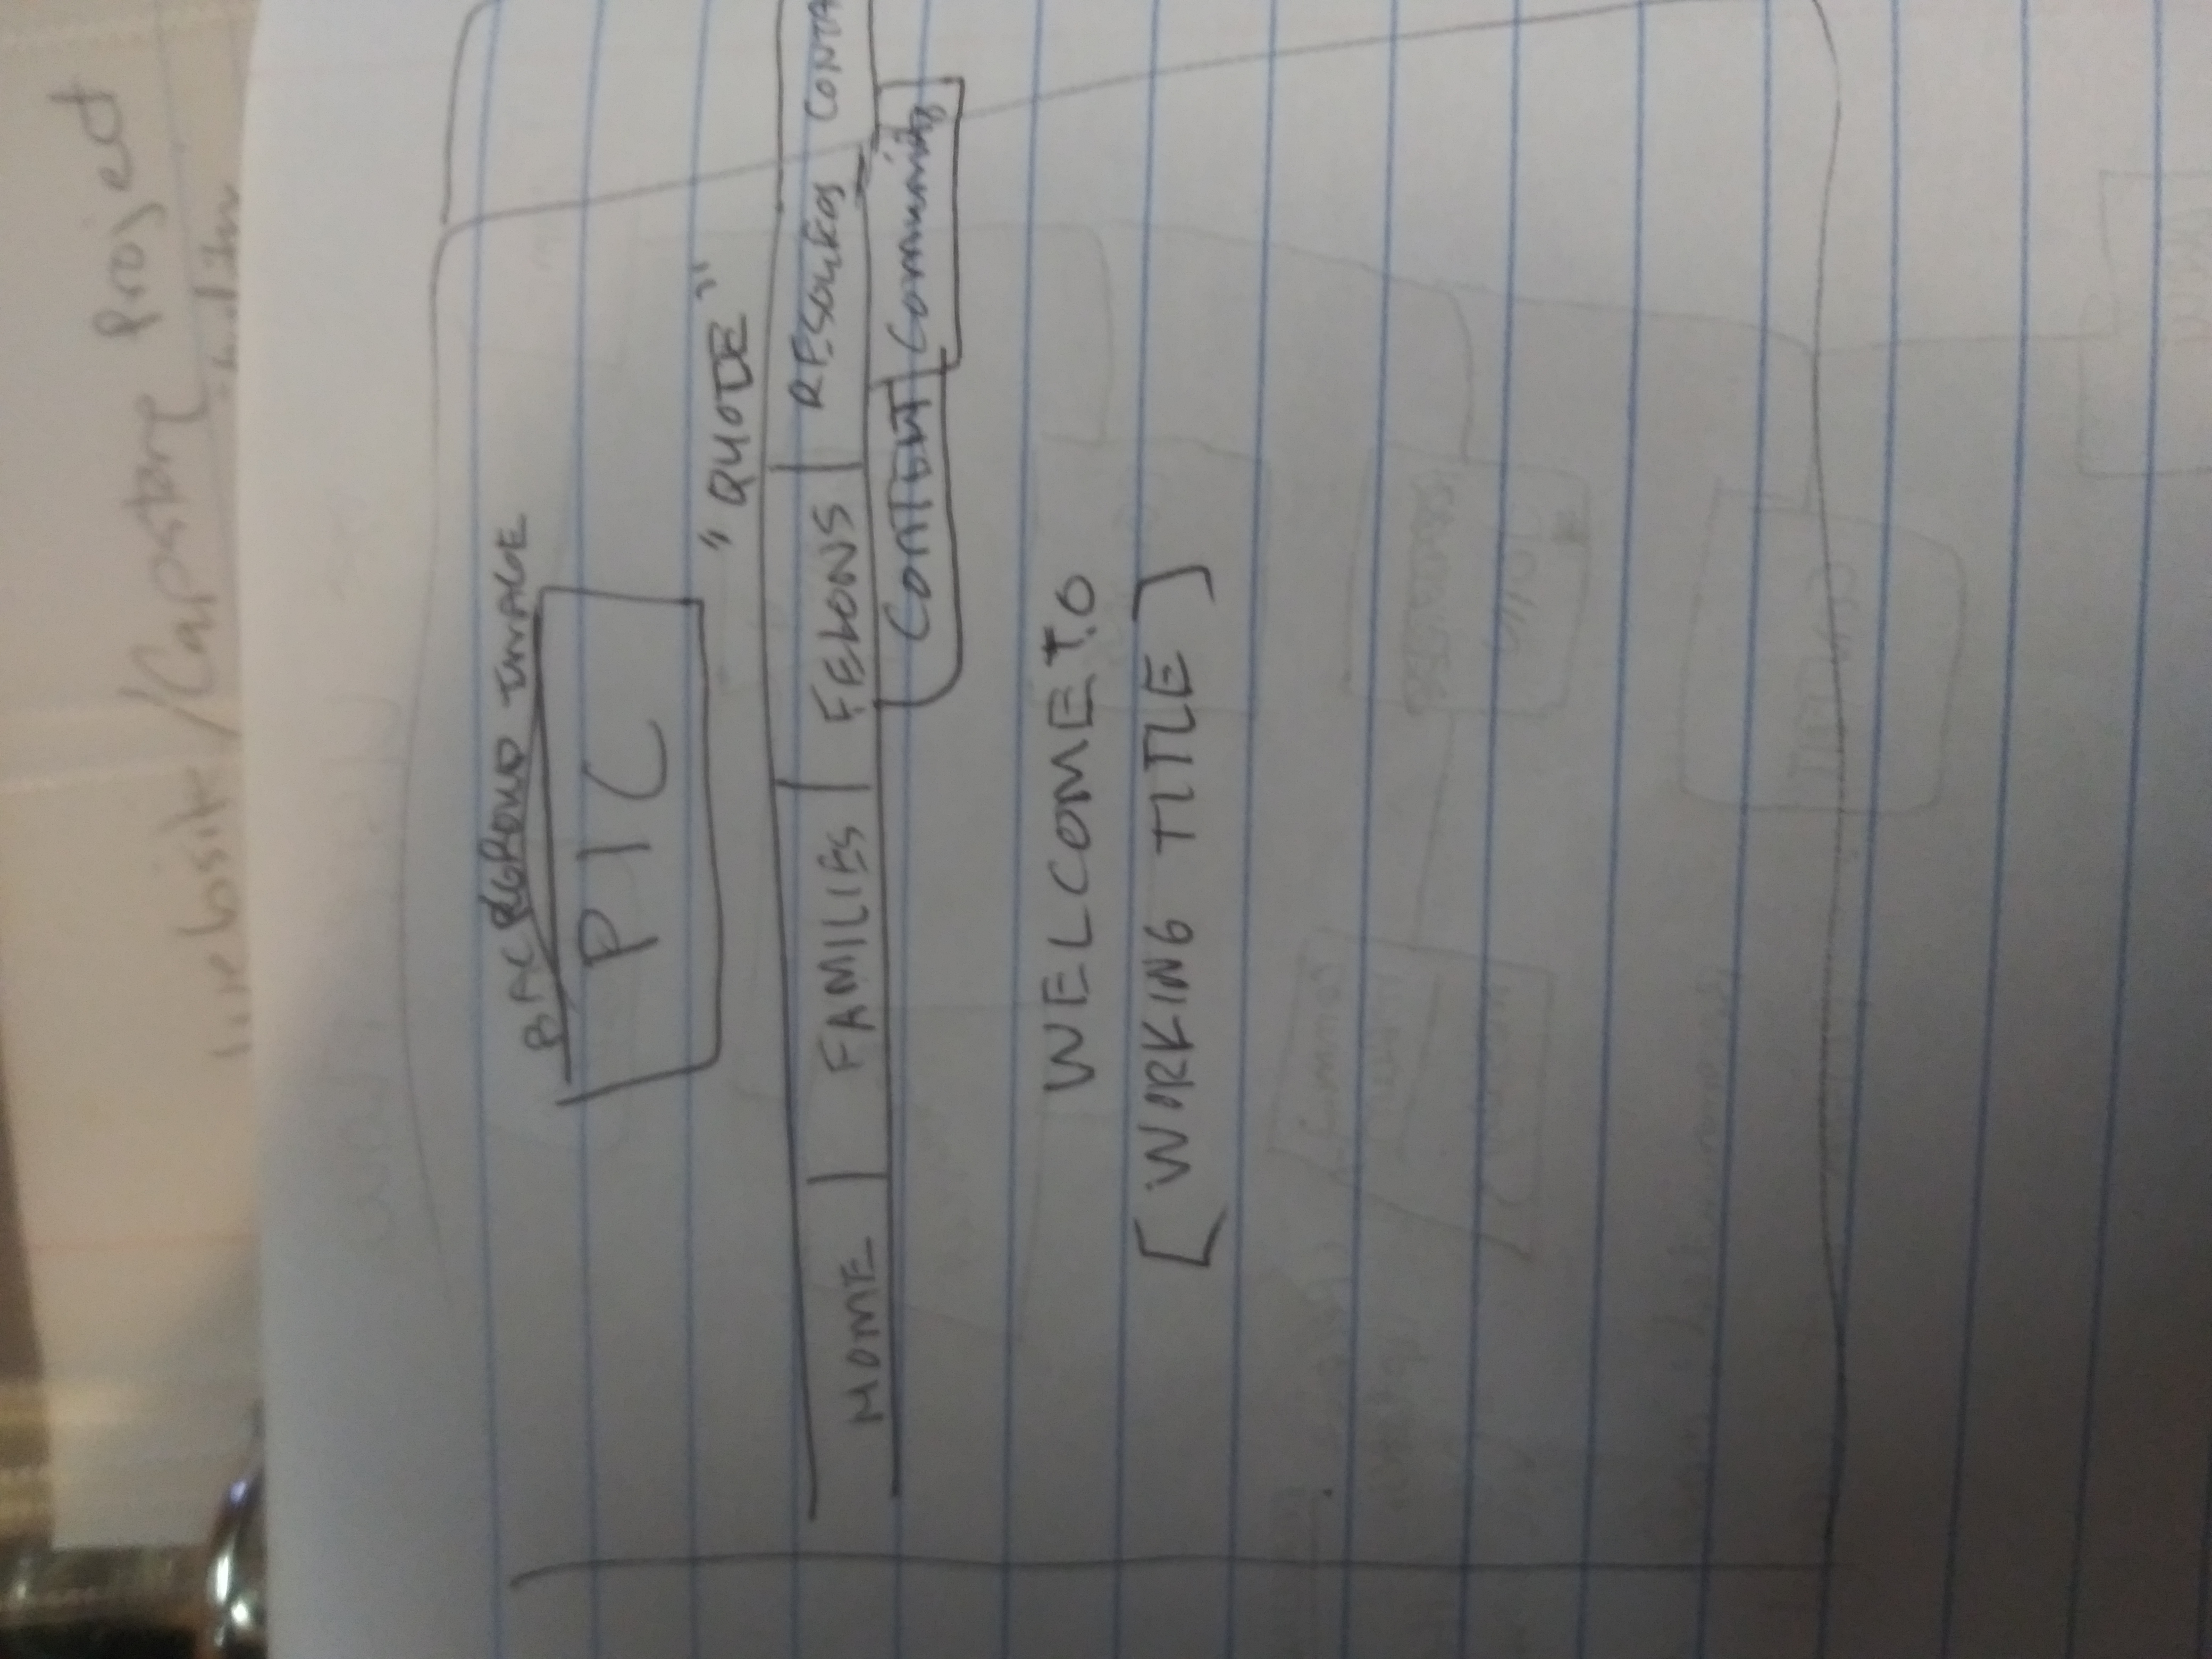 Website/Capstone Project
BACKGROUND IMAGE
PIC
"QUOTE"
HOME | FAMILIES | FELONS | RESOURCES CONTA
CONTENT | Community
WELCOME TO
[ WORKING TITLE ]